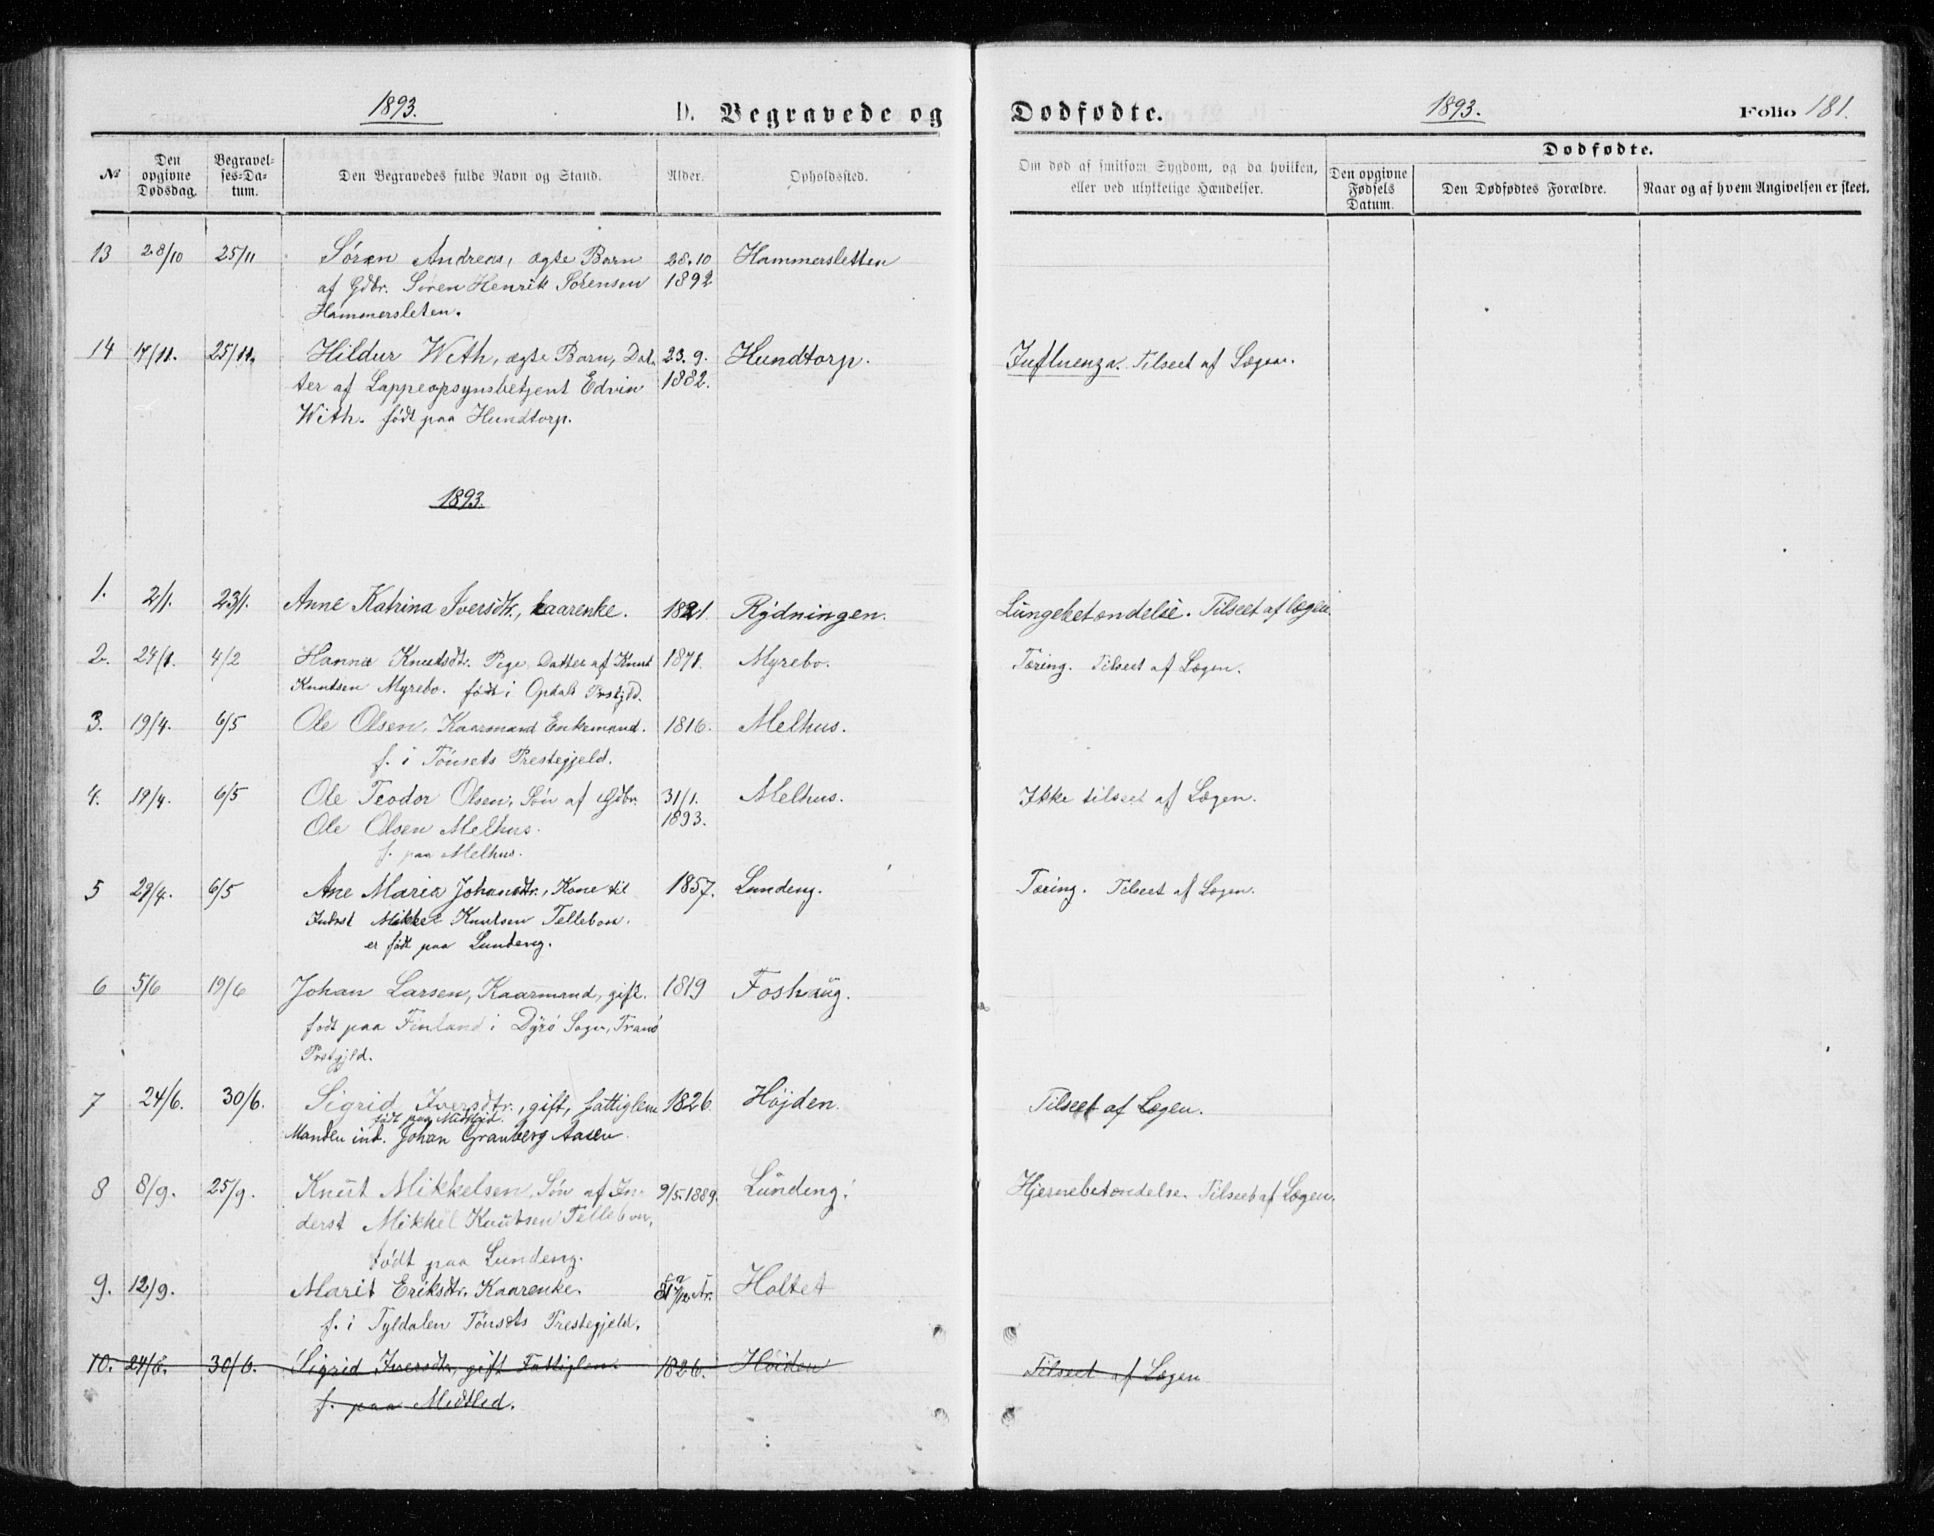 1893. D. Begravede og Dødfødte. 1893. Folio 181.
№ Den opgivne Dødsdag. Begravelses-Datum. Den Begravedes fulde Navn og Stand. Alder. Opholdssted. Om død af smitsom Sygdom, og da hvilken, eller ved ulykkelige Hændelser. Dødfødte. Den opgivne Fødsels Datum. Den Dødfødtes Forældre. Naar og af hvem Angivelsen er skeet.
13 28/10 25/11 Søren Andreas, ægte Barn 28.10 Hammersletten
af Gdbr. Søren Henrik Sørensen 1892
Hammersleten.
14 17/11. 25/11. Hildur With, ægte Barn, Dat- 23.9. Hundtorp. Influenza. Tilseet af Lægen.
ter af Lappeopsynsbetjent Edvin 1882.
With. født paa Hundtorp.
1893.
1. 2/1. 23/1. Anne Katrina Iversdtr., kaarenke. 1821. Rydningen. Lungebetændelse. Tilseet af lægen.
2. 24/1. 4/2 Hanna Knutsdtr. Pige, Datter af Knut 1871. Myrebo. Tæring. Tilseet af Lægen.
Knutsen Myrebo. født i Opdals Prstgjld.
3. 19/4. 6/5 Ole Olsen, Kaarmand Enkemand. 1816. Melhus.
f. i Tönsets Prestegjeld.
4. 19/4. 6/5 Ole Teodor Olsen, Søn af Gdbr. 31/1. Melhus. Ikke tilseet af Lægen.
Ole Olsen Melhus. 1893.
f. paa Melhus.
5 29/4. 6/5 Ane Maria Johansdtr., Kone til 1857. Lundeng. Tæring. Tilseet af Lægen.
Inderst Mikkel Knutsen Tellebon.
er født paa Lundeng.
6 5/6 19/6 Johan Larsen, Kaarmand, gift. 1819 Foshaug.
født paa Finland i Dyrö Sogn, Tranö
Prstgjld.
7 24/6. 30/6. Sigrid Iversdtr., gift, fattiglem 1826. Höjden. Tilseet af Lægen.
født paa Midtlid.
Manden ind. Johan Granberg Aasen
8 8/9. 25/9. Knut Mikkelsen, Søn af In- 9/5.1889. Lundeng. Hjernebetændelse. Tilseet af Lægen.
derst Mikkel Knutsen Tellebon,
født paa Lundeng.
9. 12/9. Marit Eriksdtr. Kaarenke. Aar. Holtet
f. i Tyldalen Tönsets Prestegjeld.
10. 24/6. 30/6. Sigrid Iversdtr., gift Fattiglem 1826. Höiden Tilseet af Lægen
f. paa Midtlid.